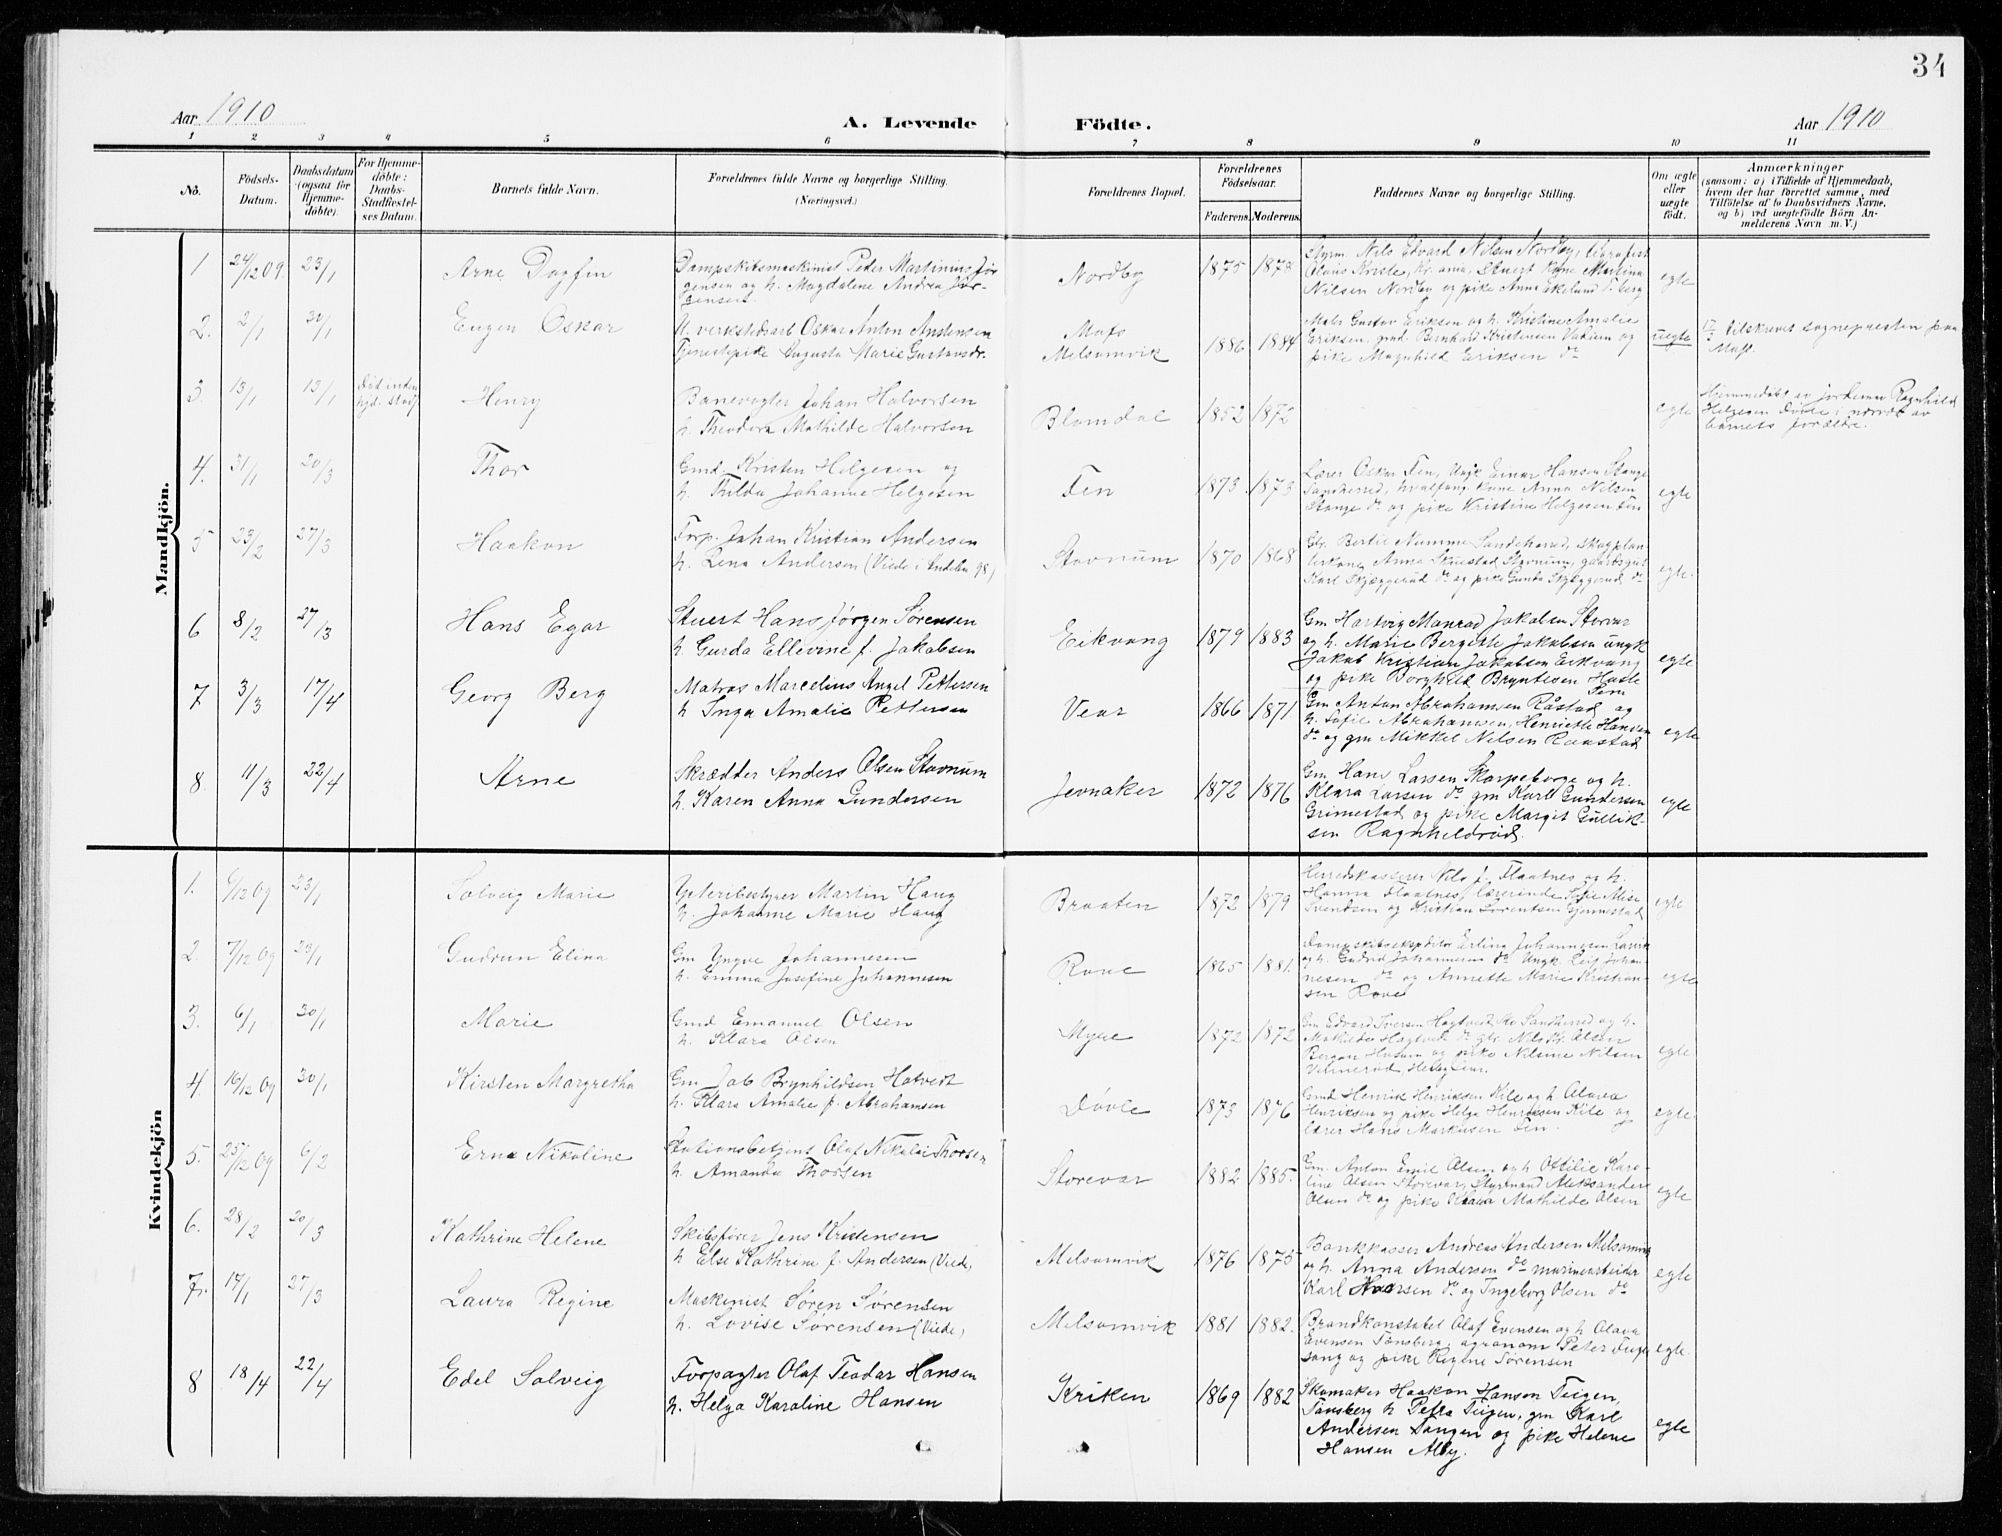 34
Aar 1910
A. Levende Födte.
Aar 1910
1 2 3 4 5 6 7 8 9 10 11
No.
Födsels-Datum.
Daabsdatum (ogsaa for Hjemme-döbte).
For Hjemme-döbte: Daabs-Stadfæstel-ses Datum.
Barnets fulde Navn.
Forældrenes fulde Navne og borgerlige Stilling.
(Næringsvei.)
Forældrenes Bopæl.
Forældrenes Födselsaar.
Faderens. Moderens.
Faddernes Navne og borgerlige Stilling.
Om ægte eller uægte födt.
Anmærkninger
(saasom: a) i Tilfælde af Hjemmedaab,
hvem der har forrettet samme, med
Tilföielse af to Daabsvidners Navne,
og b) ved uægtefödte Börn An-
melderens Navn m. V.)
Mandkjön.
1 24/12 09. 23/1 Arne Dagfin
Dampskibsmaskinist Peder Martinius Jør-
gensen og h. Magdalene Andrea Jør-
gensen.
Nordby 1875 1878
Styrm. Nils Edvard Nilsen Nordby,
Nilsen Nordby og pike Anna
egte
2. 2/1 30/1 Eugen Oskar
U. verkstedsarb Oskar Anton Andensen
Tjenestepike Augusta Marie Gustavsdr.
Mafs
Melsomvik 1886 1884
Maler Gustav Eriksen og h. Kristine Amalie
Eriksen, gmd. Bernhard Kristensen Vakum og
pike Magnhild Eriksen do
uegte
17/2 tilskrevet sognepresten paa
3. 13/1 13/1 Død inden
Henry
Banevogter Johan Halvorsen
h. Theodora Mathilde Halvorsen
Blomdal 1852 1872
egte
Hjemmedøbt av jordemor Ragnhild
Helgesen Døvle i nærvær av
barnets forældre.
4. 31/1 20/3 Thor
Gmd. Kristen Helgesen og
h. Thilda Johanne Helgesen
Fen 1873. 1873
Lærer Oskar Fen, Ungk Einar Hansen Stange
Sandherred, hvalfang. kone Anna Nilsen
Stange do og pike Kristine Helgesen Fen
egte
5 23/2 27/3 Haakon
Forp. Johan Kristian Andersen
h. Lena Andersen (Viede i Andebu 98.)
Stavnum 1870 1868
Gbr. Bertil Numme Sandeherred, skogplan-
terkone Anna Skuestad Stavnum, gaardsgut
Karl Skjeggerud do og pike Gunda Skjeggerud do
egte.
6 8/2 27/3 Hans Egar
Stuert Hans Jørgen Sørensen
h. Gurda Ellevine f. Jakobsen
Eikvang 1879 1883
Gm Hartvig Manrad Jakobsen Storvar
og h. Marie Bergitte Jakobsen ungk
Jakob Kristian Jakobsen Eikvang
og pike Borghild Bryntesen Hasle
egte
7 3/3 17/4 Georg Berg
Matros Marcelius Angel Pettersen
h Inga Amalie Pettersen
Vear 1866 1871
Sem
Gm Anton Abrahamsen Råstad og
h. Sofie Abrahamsen, Henriette Hansen
do og gm Mikkel Nilsen Raastad
egte
8. 11/3 22/4 Arne
Skrædder Anders Olsen Stavnum
h. Karen Anna Gundersen
Jevnaker 1872 1876
Gm Hans Larsen Skarpeborge og h.
Klara Larsen do gm Karl Gundersen
Grimestad og pike Margit Gullik-
sen Ragnheldrød.
egte
Kvindekjön
1. 6/12 09 23/1 Solveig Marie
Ysteribestyrer Martin Haug
h. Johanne Marie Haug
Braaten 1872 1879
Herredskasserer Nils J. Flaatnes og h.
Hanna Flaatnes, lærerinde Sofie Mise
Svendsen og Kristian Sørentsen Gjennestad
egte
2. 7/12 09 23/1 Gudrun Elina
Gm Yngve Johannesen
h. Emma Josefine Johannesen
Rove 1865 1881.
Dampskibsekspditør Erling Johannesen Larvik
og h. Gudrid Johannesen do Ungk. Leif Johan-
nesen do og Annette Marie Kristian-
sen Rove
egte
3. 6/1 30/1 Marie
Gmd Emanuel Olsen
h. Klara Olsen
Myre 1872 1872
Gm Edvard Iversen Hagtvedt Sandherred og h.
Mathilde Hagtvedt do gbr. Nils Kr. Olsen
Bergan Husum og pike Nilsine Nilsen
egte.
4. 16/12 09 30/1 Kirsten Margretha
Gm Job Brynhildsen Hotvedt
h. Klara Amalie f. Abrahamsen
Døvle 1873 1876
Gmd Henrik Henriksen Kile og h Olava
Henriksen og pike Helga Henriksen Kile og
lærer Hans Markusen Fen.
egte.
5. 25/12 09 6/2 Erna Nikoline
Stationsbetjent Olaf Nikolai Thorsen
h. Amanda Thorsen
Storevar 1882 1885.
Gm. Anton Emil Olsen og h Ottilie Karo-
line Olsen Storevar, Styrmand Aleksander
Olsen do og pike Olava Mathilde Olsen
egte
6. 28/2 20/3 Kathrine Helene
Skibsfører Jens Kristensen
h Else Kathrine f. Andersen (Viede,
Melsomvik 1876 1875
Bankkasser Andreas Andersen Melsomvik
og h. Anna Andersen do marinearbeider
Karl Hansen do og Ingeborg Olsen do
egte
7. 17/1 27/3 Laura Regine
Maskinist Søren Sørensen
h. Lovise Sørensen (Viede,
Melsomvik 1881 1882.
Brandkonstabel Olaf Evensen og h Olava
Evensen Tønsberg, agronom Peter Fugle-
sang og pike Regine Sørensen
egte.
8 18/4 22/4 Edel Solveig
Forpagter Olaf Teodor Hansen
h. Helga Karoline Hansen
Kriken 1869 1882
Skomaker Haakon Hanson Teigen,
Tønsberg h Petra Teigen, gm Karl
Andersen Tangen og pike Helene
Hansen Alby.
egte